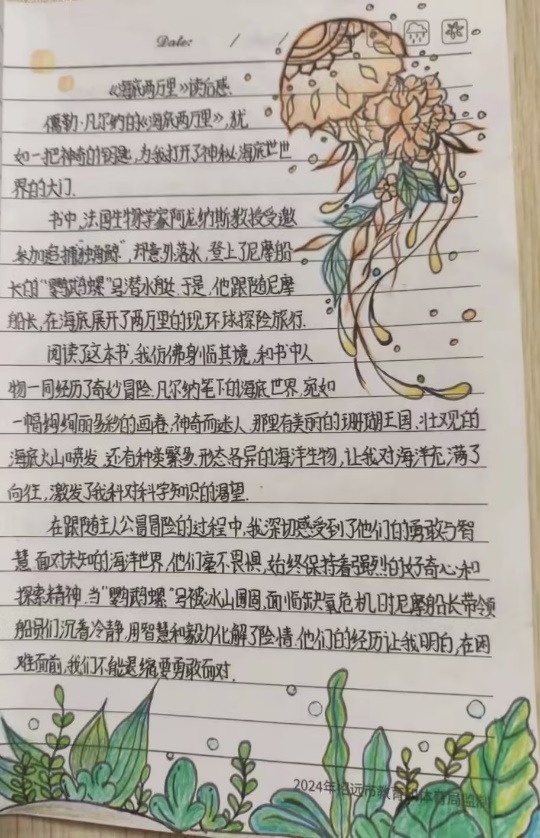 Date: / /
《海底两万里》读后感.
儒勒·凡尔纳的《海底两万里》,犹
如一把神奇的钥匙,为我打开了神秘海底世世
界的大门.
书中,法国生物学家阿龙纳斯教授受邀
参加追捕"独角鲸",却意外落水,登上了尼摩船
长的"鹦鹉螺"号潜水艇.于是,他跟随尼摩
船长,在海底展开了两万里的现环球探险旅行.
阅读了这本书,我仿佛身临其境,和书中人
物一同经历了奇妙冒险.凡尔纳笔下的海底世界,宛如
一幅绚丽多彩的画卷,神奇而迷人,那里有美丽的珊瑚王国、壮观的
海底火山喷发,还有种类繁多,形态各异的海洋生物,让我对海洋充满了
向往,激发了我对科学知识的渴望.
在跟随主人公冒险的过程中,我深切感受到了他们的勇敢与智
慧.面对未知的海洋世界,他们毫不畏惧,始终保持着强烈的好奇心和
探索精神.当"鹦鹉螺"号被冰山围困,面临缺氧危机时,尼摩船长带领
船员们沉着冷静,用智慧和毅力化解了险情.他们的经历让我明白,在困
难面前,我们不能退缩,要勇敢面对.
2024年招远市教育和体育局监制